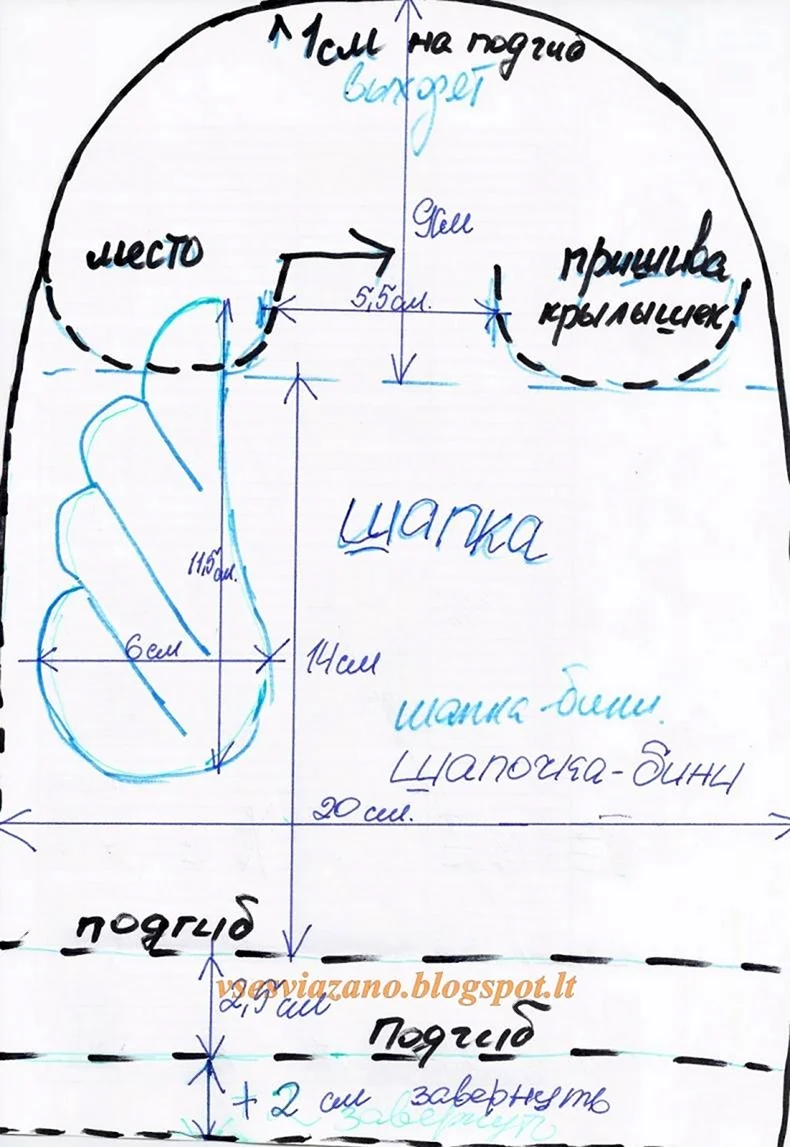 1см на подгиб
выходят
9см
место
пришива
5,5см.
крылышек
шапка
11,5см.
6см
14см
шапка-бини.
шапочка-бини
20см.
подгиб
vsesviazano.blogspot.lt
2,5см
подгиб
+2 см завернуть
завернуть